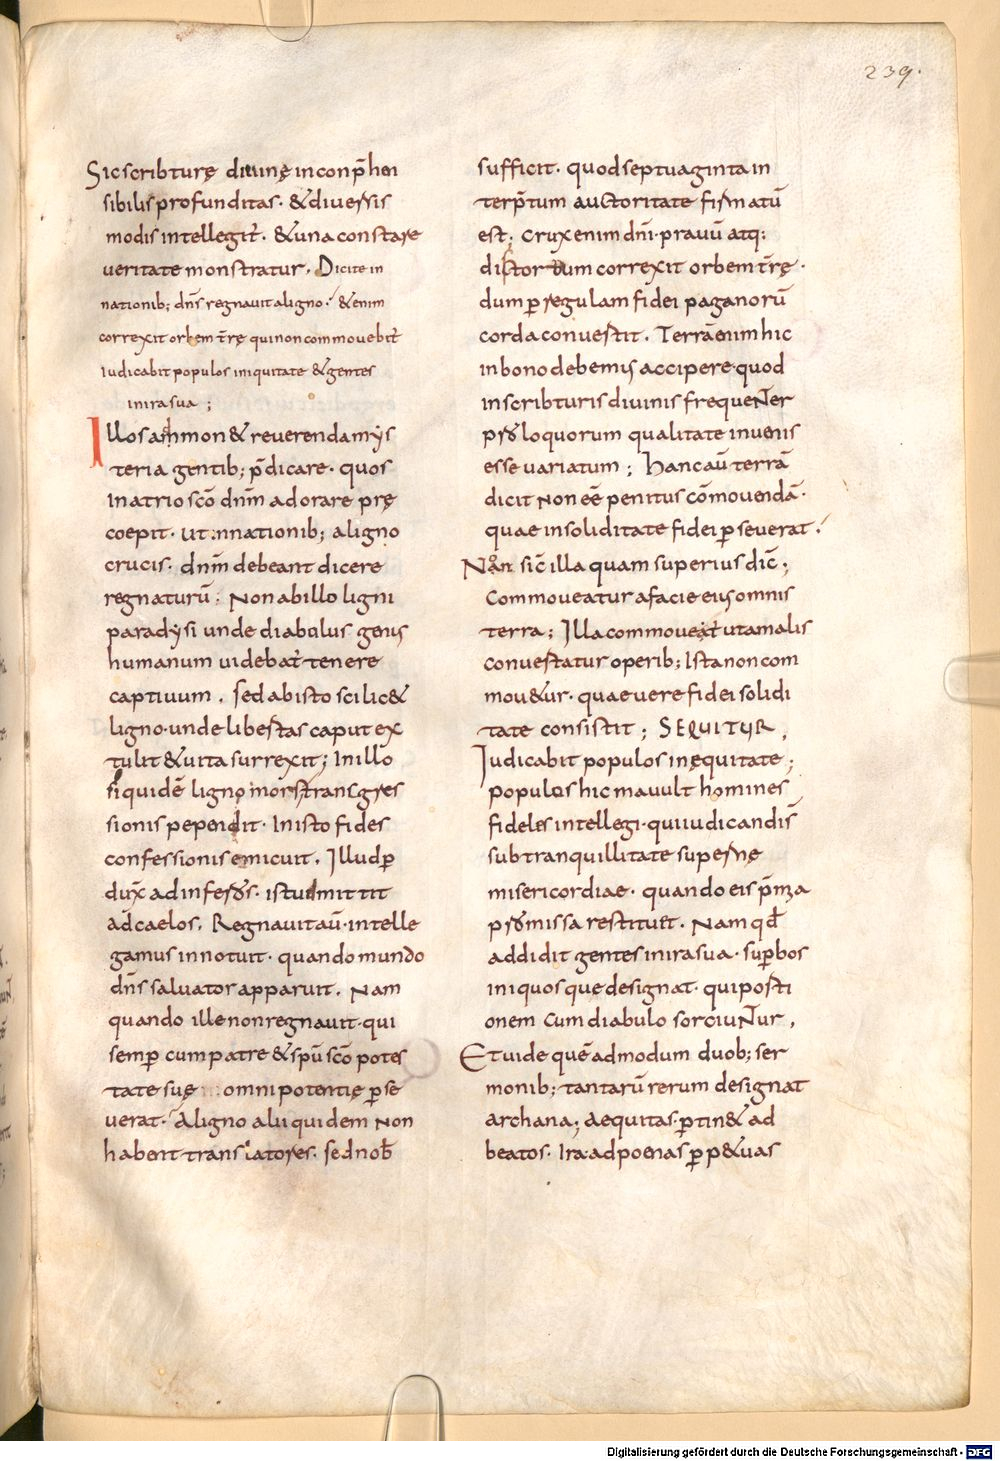 239.
Sic scribturę diuinę inconp̄hen
sibilis profunditas· & diuersis
modis intellegit̄· & una constare
ueritate monstratur. Dicite in
nationib; dn̄s regnauit aligno· & enim
correxit orbem t̄rę qui non commouebit̄
Iudicabit populos in iquitate & gentes
inirasua ;
Illos ammon& reuerenda mys
teria gentib; p̄dicare· quos
In atrio sc̄o dn̄m adorare prę
coepit· ut innationib; aligno
crucis· dn̄m debeant dicere
regnaturū· Non ab illo ligni
paradysi unde diabulus genus
humanum uidebat̄ tenere
captiuum. sed abisto scilic&
ligno· unde libertas caput ex
tulit & uita surrexit; In illo
siquidē ligno mors transgres
sionis pependit· In isto fides
confessionis emicuit. Illud p̱
dux̄ ad infer͛s· istud mittit
ad caelos. Regnauit aū· intelle
gamus innotuit· quando mundo
dn̄s saluator apparuit. Nam
quando ille non regnauit· qui
semp̱ cum patre & spū sc̄o potes
tate suę omnipotentię p̱se
uerat· A ligno alii quidem non
habent translatores· sed nob̄
sufficit· quod septuaginta in
terp̄tum auctoritate firmatū
est; Crux enim dn̄i· prauū atq;
distortum correxit orbem t̄rę·
dum p̱ regulam fidei paganorū
corda conuertit. Terrā enim hic
in bono debemus accipere· quod
in scribturis diuinis frequeNter
pro loquorum qualitate inuenis
esse uariatum; Hanc aū terrā
dicit non eē penitus cōmouendā·
quae in soliditate fidei p̱seuerat·
Nōn sic̄ illa quam superius dic̄;
Commoueatur a facie eius omnis
terra; Illa commoueat̄ ut a malis
conuertatur operib; Ista non com
mou&ur· quae uere fidei solidi
tate consistit; SEQUITUR.
Iudicabit populos in ęquitate;
populos hic mauult homines
fideles intellegi· qui iudicandis
sub tranquillitate supernę
misericordiae· quando eis p̄mia
promissa restituet· Nam qd̄
addidit gentes inirasua· sup̱bos
iniquosque designat· qui porti
onem cum diabulo sorciuNtur.
Et uide quē ad modum duob; ser
monib; tantarū rerum designat
archana; aequitas p̱tin& ad
beatos· Ira· ad poenas p̱p&uas
Digitalisierung gefördert durch die Deutsche Forschungsgemeinschaft - DFG